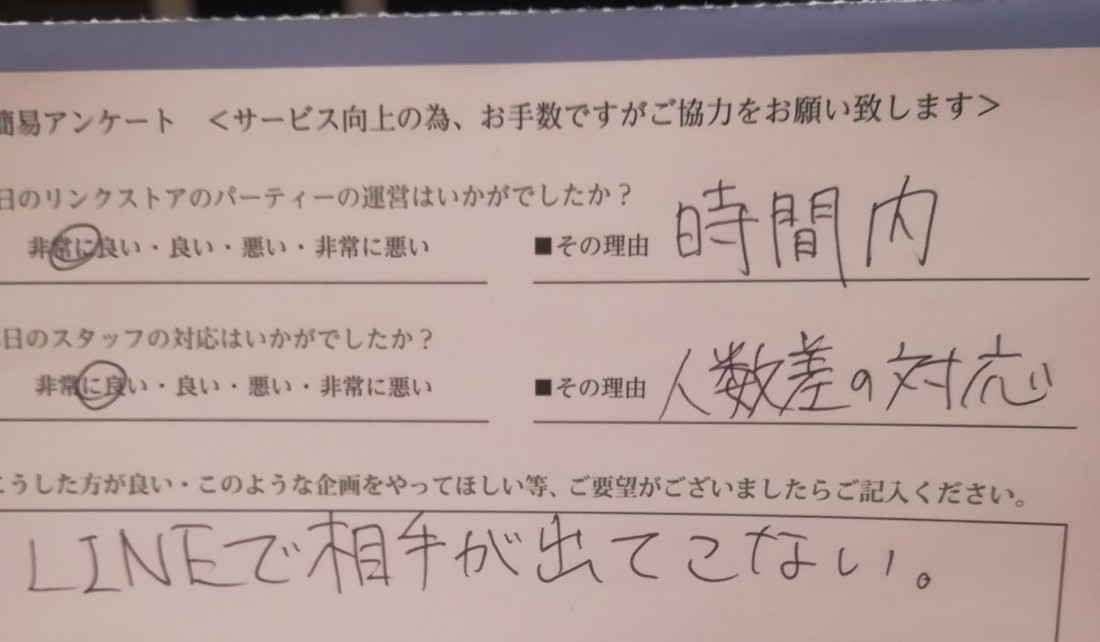 簡易アンケート ＜サービス向上の為、お手数ですがご協力をお願い致します＞
日のリンクストアのパーティーの運営はいかがでしたか？
非常に良い・良い・悪い・非常に悪い ■その理由 時間内
日のスタッフの対応はいかがでしたか？
非常に良い・良い・悪い・非常に悪い ■その理由 人数差の対応
こうした方が良い・このような企画をやってほしい等、ご要望がございましたらご記入ください。
LINEで相手が出てこない。